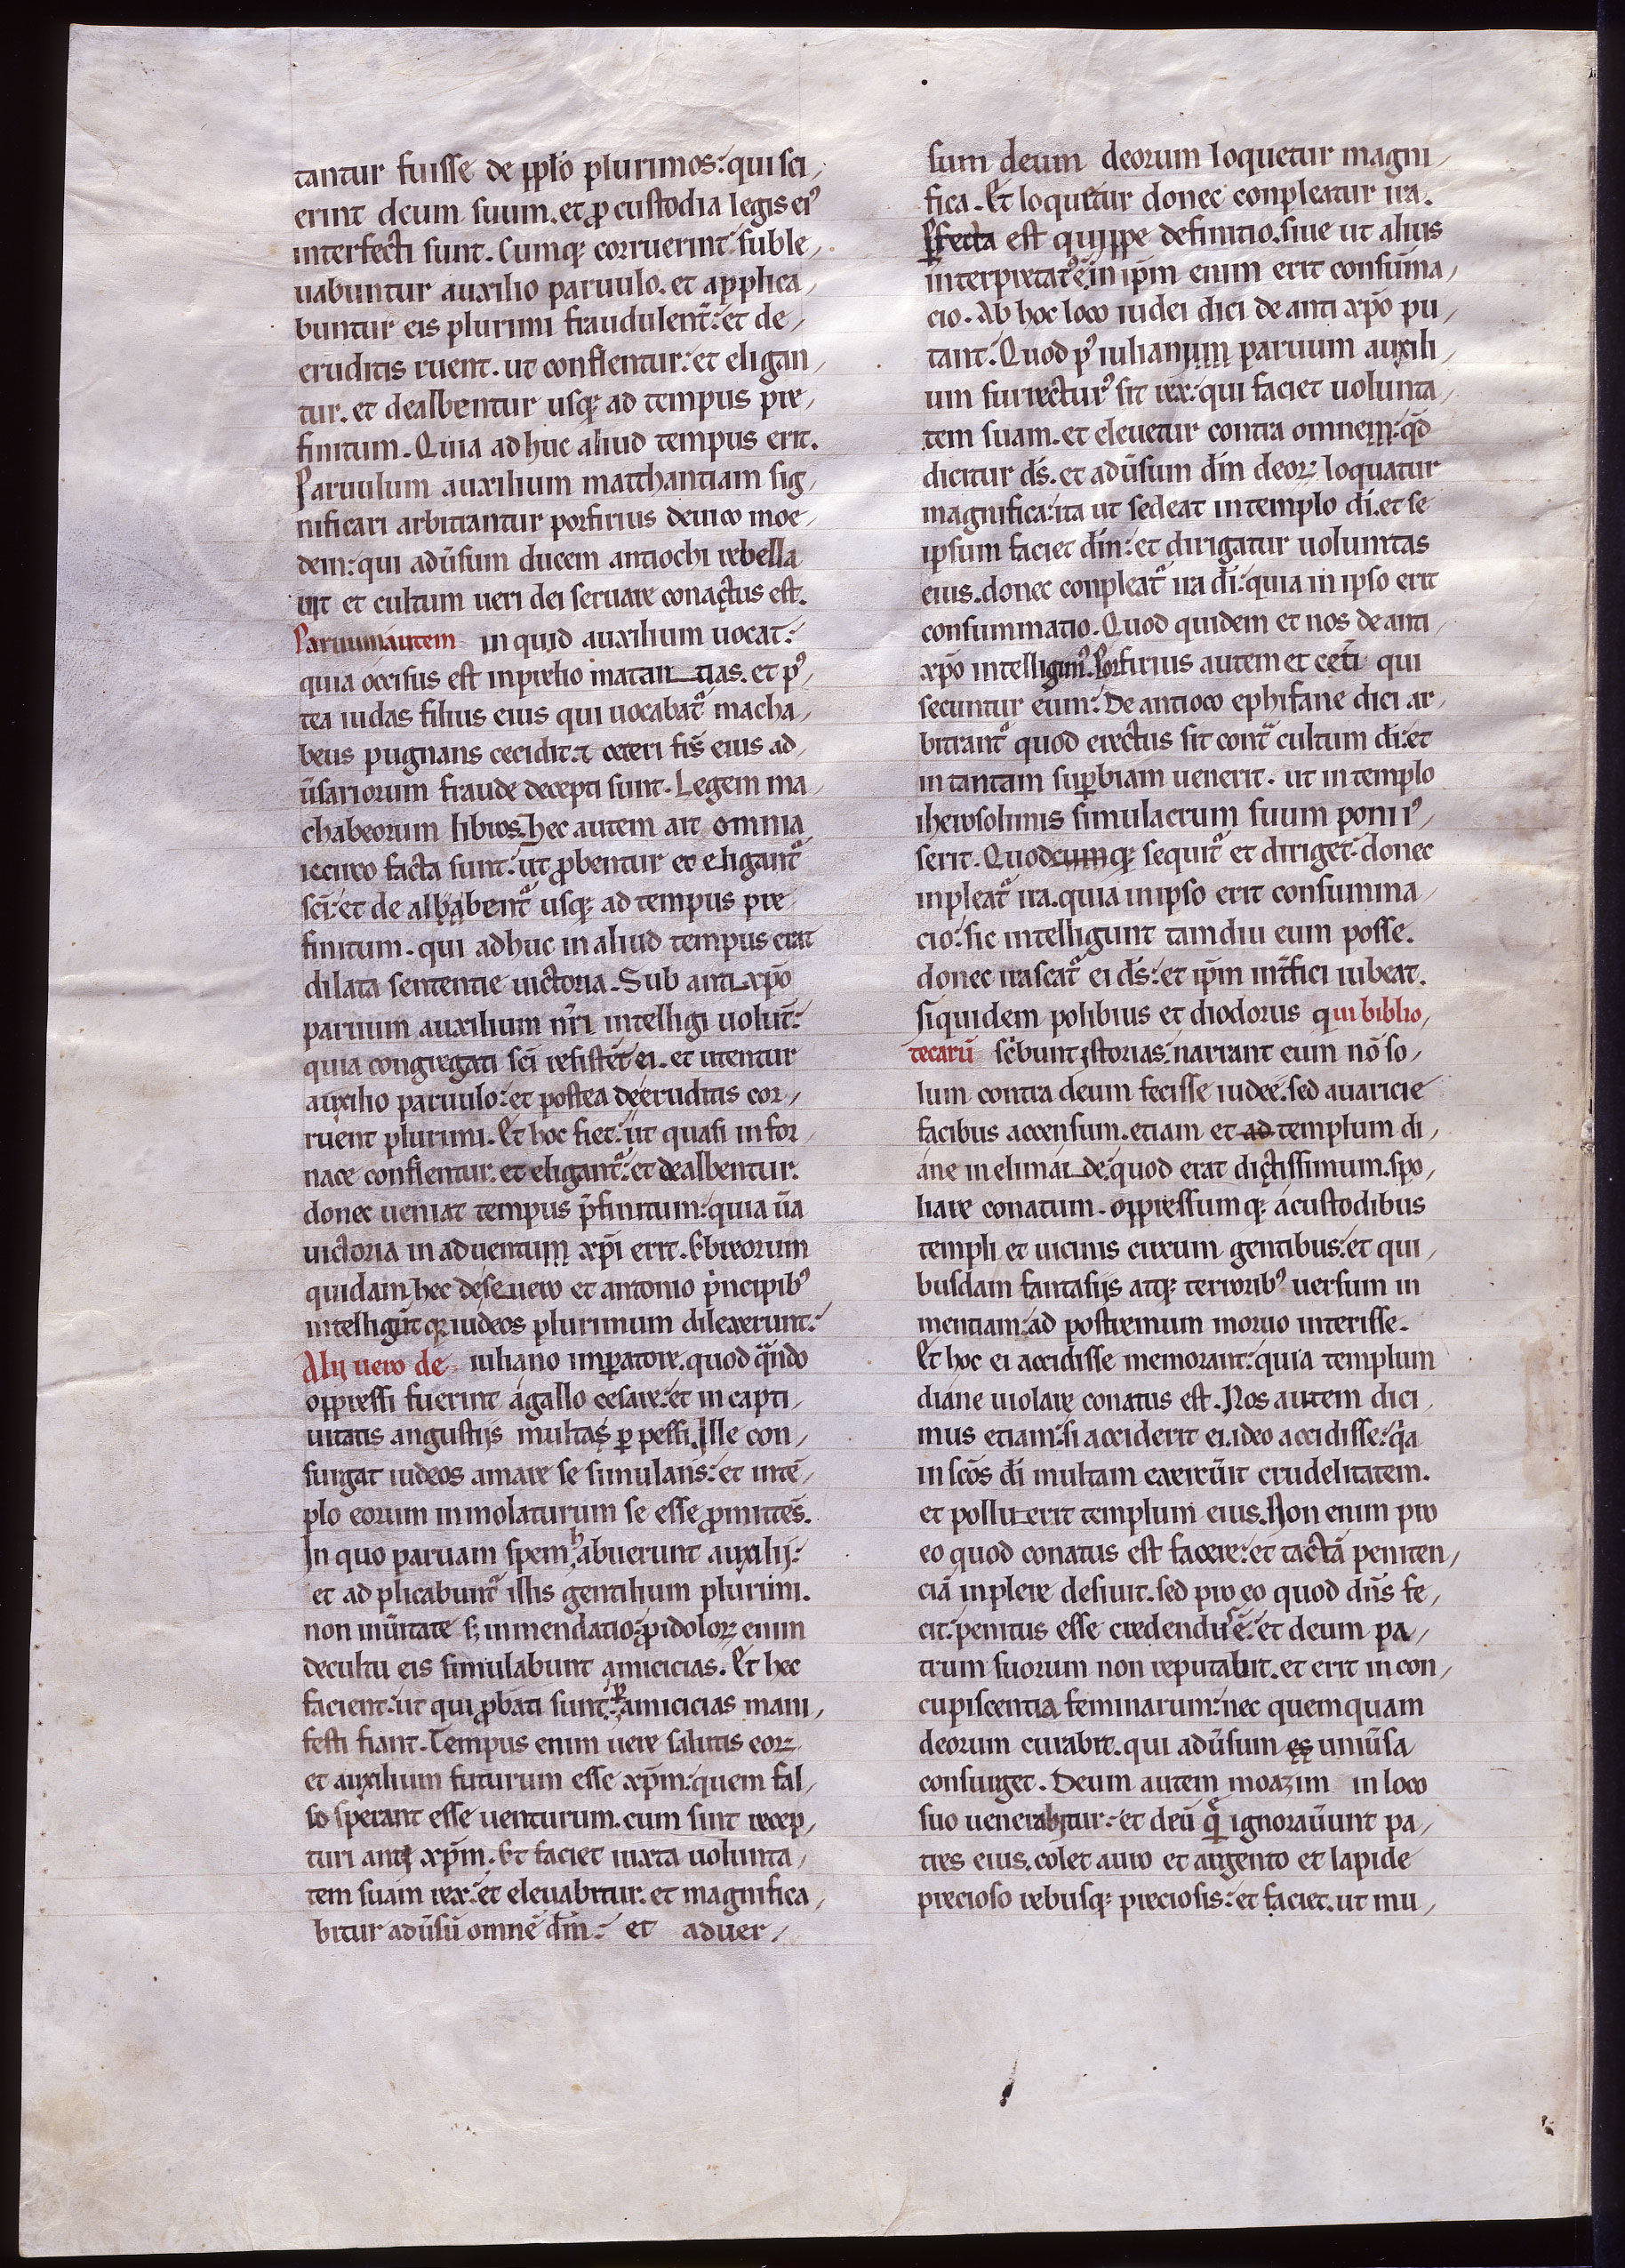 tantur fuisse de pplo plurimos: qui sci,
erint deum suum. et ꝓ custodia legis eiꝰ
interfecti sunt. Cumqꝫ corruerint suble,
uabuntur auxilio paruulo. et applica,
buntur eis plurimi fraudulent̄: et de,
eruditis ruent. ut conflentur: et eligan,
tur. et dealbentur usqꝫ ad tempus pre,
finitum. Quia ad huc aliud tempus erit.
Paruulum auxilium matthantiam sig,
nificari arbitrantur porfirius deuico moe,
dein: qui adūsum ducem antiochi rebella
uit et cultum ueri dei seruare conactus est.
Paruum autem in quid auxilium uocat:
quia occisus est in prelio matan tias. et pꝰ
tea iudas filius eius qui uocabat᷑ macha,
beus pugnans cecidit: ⁊ ceteri fr̄s eius ad,
ūsariorum fraude decepti sunt. Legem ma,
chabeorum libros. hec autem ait omnia
iccirco facta sunt: ut ꝓbentur et eligant᷑
sc̄i: et de albabent᷑ usqꝫ ad tempus pre
finitum. qui adhuc in aliud tempus erat
dilata sententie uictoria. Sub anti xp̄o
paruum auxilium nr̄i intelligi uolūt:
quia congregati sc̄i resistēt ei. et utentur
auxilio paruulo: et postea de eruditis cor,
ruent plurimi. Et hoc fiet: ut quasi in for,
nace conflentur. et eligant᷑: et dealbentur.
donec ueniat tempus p̄finitum: quia ūa
uictoria in aduentum xp̄i erit. Ebreorum
quidam hec de seuero et antonio pͥncipibꝰ
intelligūt qꝫ iudeos plurimum dilexerunt:
Alij uero de iuliano imꝑatore. quod qͣndo
oppressi fuerint a gallo cesare: et in capti,
uitatis angustijs multas ꝑ pessi. Ille con,
surgat iudeos amare se simulans: et in tē,
plo eorum inmolaturum se esse ꝓmittēs.
In quo paruam spem habuerunt auxilij:
et ad plicabunt᷑ illis gentilium plurimi.
non in ūitate sꝫ in mendatio: ꝓ idoloꝝ enim
decultu eis simulabunt amicicias. Et hec
facient: ut qui ꝓbati sunt: ꝑ amicicias mani,
festi fiant. Tempus enim uere salutis eoꝝ
et auxilium futurum esse xp̄m: quem fal,
so sperant esse uenturum. cum sint recep,
turi anti xp̄m. Et faciet iuxta uolunta,
tem suam rex: et eleuabitur. et magnifica,
bitur adūsū omnē dm̄: et aduer,
sum deum deorum loquetur magni,
fica. Et loquetur donec conpleatur ira.
Ꝑfecta est quippe definitio. siue ut alius
interpretatꝰ ē: in ip̄m enim erit consūma,
cio. Ab hoc loco iudei dici de anti xp̄o pu,
tant. Quod pꝰ iulianum paruum auxili,
um surrecturꝰ sit rex: qui faciet uolunta,
tem suam. et eleuetur contra omnem: qd̄
dicitur ds̄. et adūsum dm̄ deoꝝ loquatur
magnifica: ita ut sedeat in templo di̅. et se
ipsum faciet dm̄: et dirigatur uolumtas
eius. donec conpleat᷑ ira di̅: quia in ipso erit
consummatio. Quod quidem et nos de anti,
xp̄o intelligimꝰ. Porfirius autem et ceti̅ qui
secuntur eum: De antioco ephifane dici ar,
bitrant᷑ quod erectus sit contͣ cultum di̅: et
in tantam suꝑbiam uenerit. ut in templo
iherosolimis simulacrum suum poni iꝰ,
serit. Quodcumqꝫ sequit᷑ et diriget: donec
inpleat᷑ ira. quia in ipso erit consumma,
cio: sic intelligunt tamdiu eum posse.
donec irascat᷑ ei ds̄: et ip̄m int̄fici iubeat.
siquidem polibius et diodorus qui biblio,
tecarū sc̄bunt istorias: narrant eum nō so,
lum contra deum fecisse iudee. sed auaricie
facibus accensum. etiam et ad templum di,
ane in elimai de: quod erat dictissimum. spo,
liare conatum. oppressumqꝫ a custodibus
templi et uicinis cirxum gentibus: et qui,
busdam fantasijs atqꝫ terroribꝰ uersum in
mentiam: ad postremum moruo interisse.
Et hoc ei accidisse memorant: quia templum
diane uiolare conatus est. Nos autem dici,
mus etiam: si acciderit ei. ideo accidisse: qͥa
in sc̄os di̅ multam exercūit crudelitatem.
et polluerit templum eius. Non enim pro
eo quod conatus est facere: et tactā peniten,
ciā inplere desiuit. sed pro eo quod dn̄s fe,
cit: penitus esse credendū ē: et deum pa,
trum suorum non reputabit. et erit in con,
cupiscentia feminarum: nec quemquam
deorum curabit. qui adūsum es uniūsa
consurget. Deum autem moazim in loco
suo uenerabitur: et deū qͤ ignorauūnt pa,
tres eius. colet auro et argento et lapide
precioso rebusqꝫ preciosis: et faciet. ut mu,